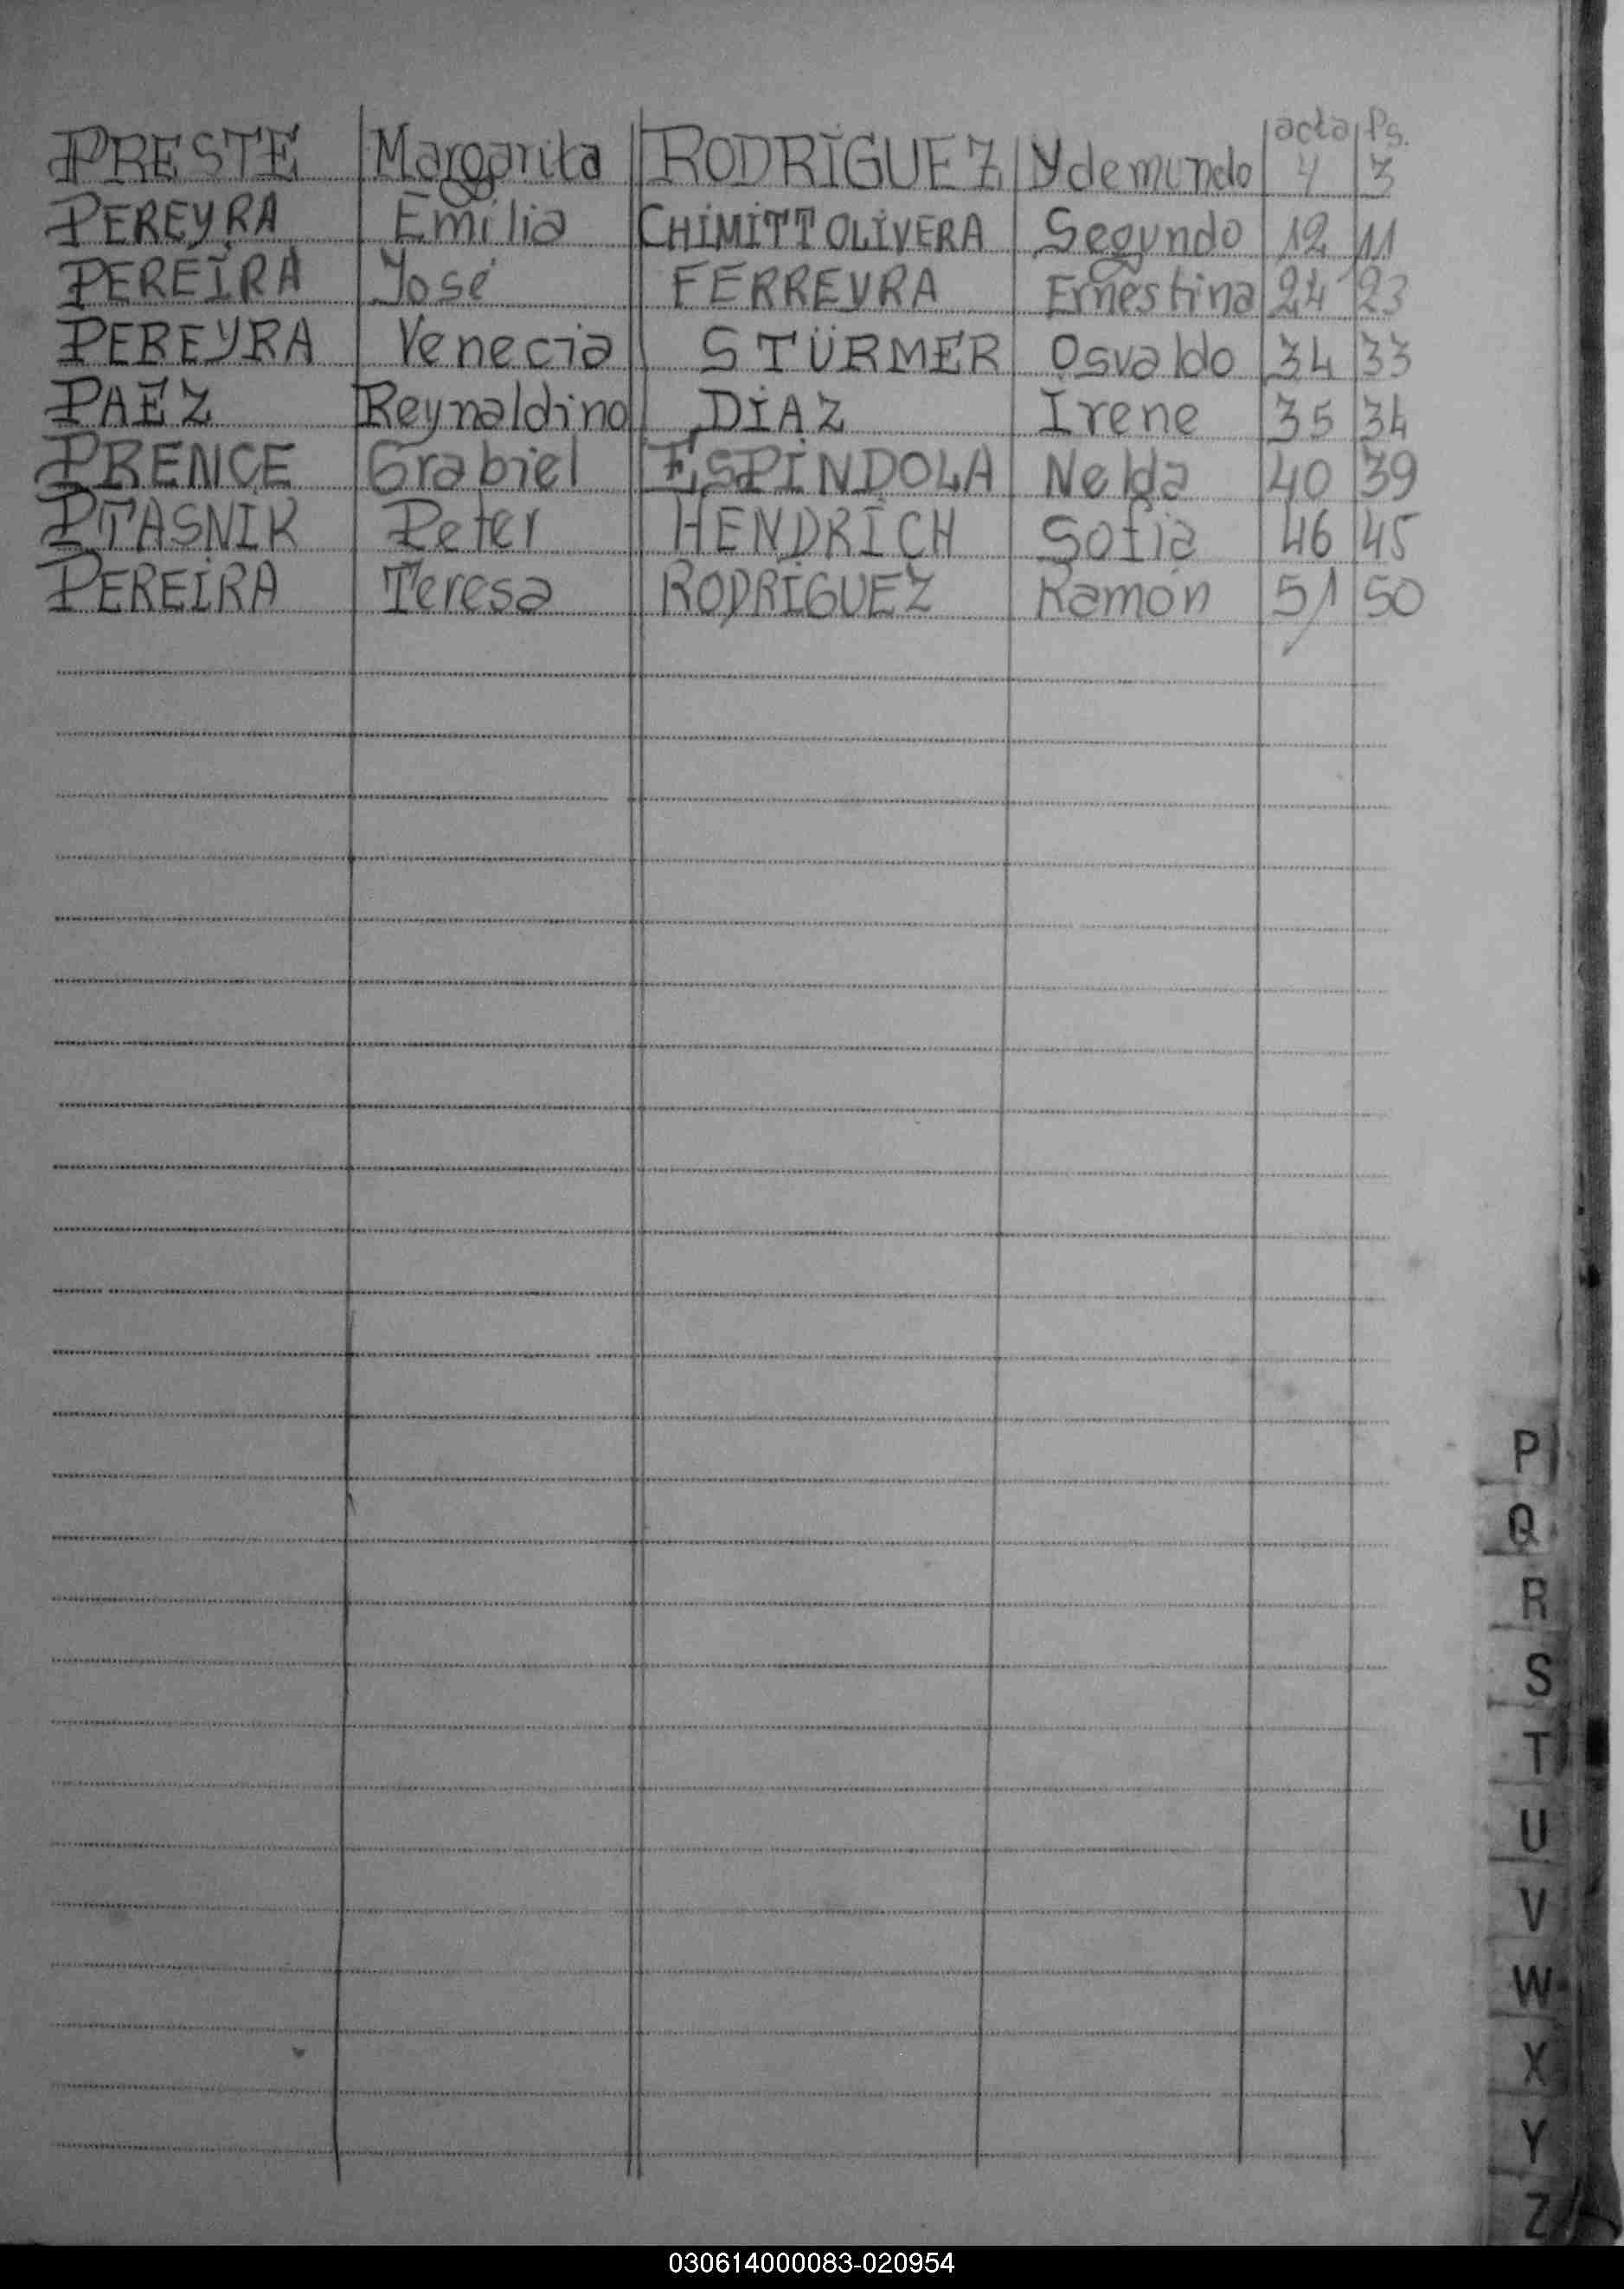 acta Ps.
PRESTE Margarita RODRÍGUEZ Ydemundo 4 3
PEREYRA Emilia CHIMITT OLIVERA Segundo 12 11
PEREIRA José FERREYRA Ernestina 24 23
PEREYRA Venecia STÜRMER Osvaldo 34 33
PAEZ Reynaldino DIAZ Irene 35 34
PRENCE Grabiel ESPINDOLA Nelda 40 39
PTASNIK Peter HENDRICH Sofia 46 45
PEREIRA Teresa RODRIGUEZ Ramón 51 50
P
Q
R
S
T
U
V
W
X
Y
Z
030614000083-020954